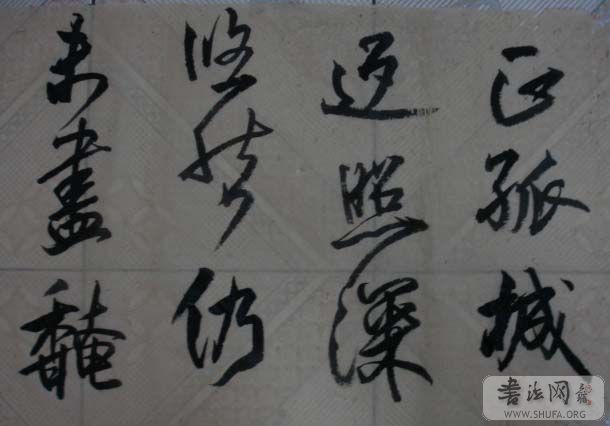 正孤城
返照深
悠仍
未盡馣
書法网
WWW.SHUFA.ORG